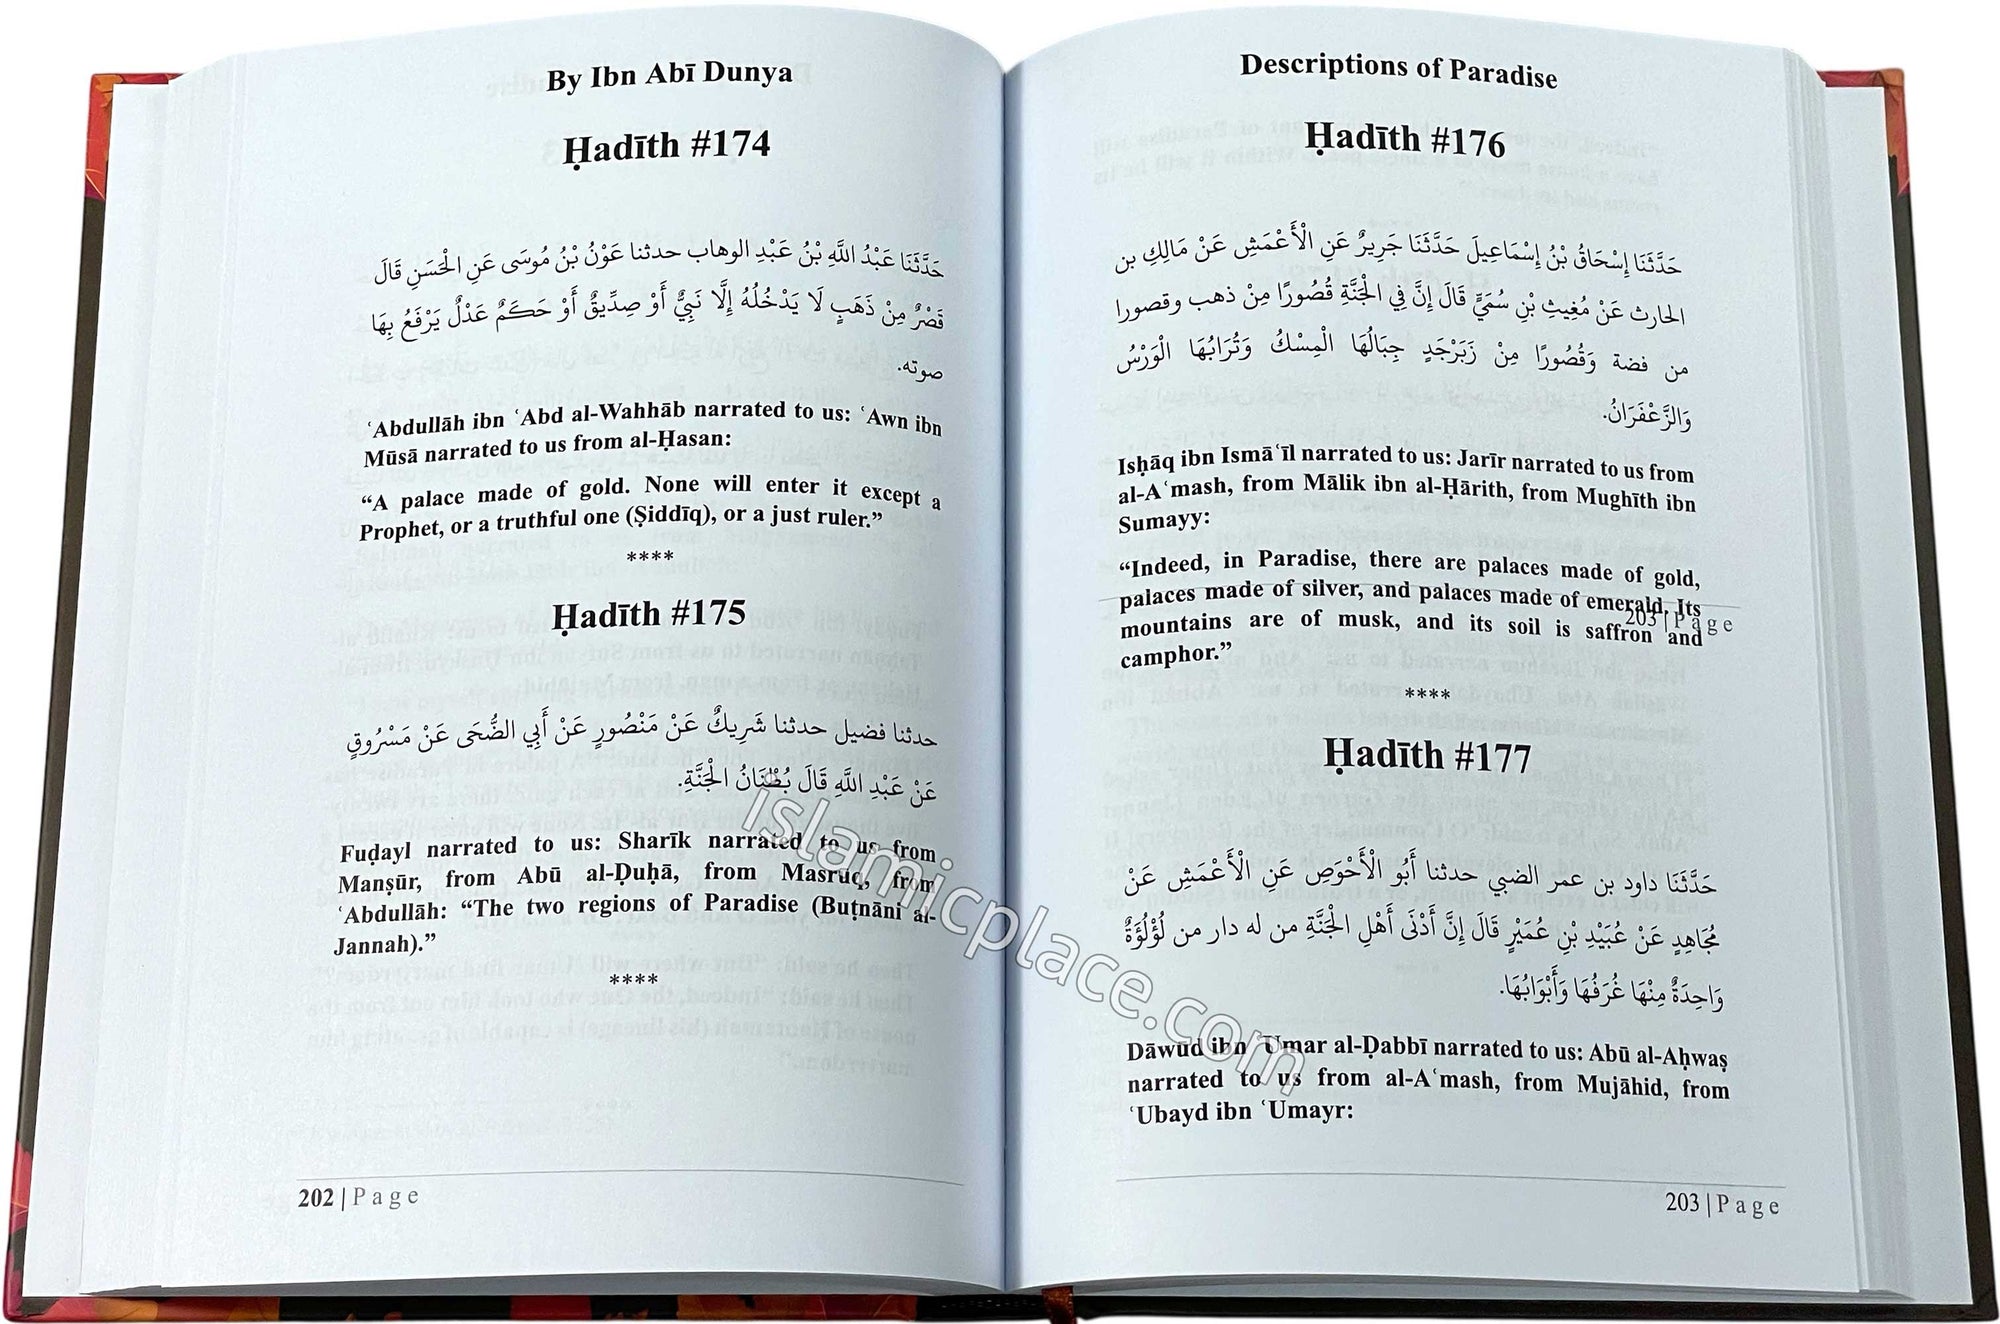 By Ibn Abī Dunya
Ḥadīth #174
حَدَّثَنَا عَبْدُ اللَّهِ بْنُ عَبْدِ الوهاب حدثنا عَوْنُ بْنُ مُوسَى عَنِ الْحَسَنِ قَالَ
قَصْرٌ مِنْ ذَهَبٍ لَا يَدْخُلُهُ إِلَّا نَبِيٌّ أَوْ صِدِّيقٌ أَوْ حَكَمٌ عَدْلٌ يَرْفَعُ بِهَا
صوته.
ʿAbdullāh ibn ʿAbd al-Wahhāb narrated to us: ʿAwn ibn
Mūsā narrated to us from al-Ḥasan:
“A palace made of gold. None will enter it except a
Prophet, or a truthful one (Ṣiddīq), or a just ruler.”
****
Ḥadīth #175
حدثنا فضيل حدثنا شَرِيكٌ عَنْ مَنْصُورٍ عَنْ أَبِي الضُّحَى عَنْ مَسْرُوقٍ
عَنْ عَبْدِ اللَّهِ قَالَ بُطْنَانُ الْجَنَّةِ.
Fuḍayl narrated to us: Sharīk narrated to us from
Manṣūr, from Abū al-Ḍuḥā, from Masrūq, from
ʿAbdullāh: “The two regions of Paradise (Buṭnāni al-
Jannah).”
****
202 | Page
Descriptions of Paradise
Ḥadīth #176
حَدَّثَنَا إِسْحَاقُ بْنُ إِسْمَاعِيلَ حَدَّثَنَا جَرِيرٌ عَنِ الْأَعْمَشِ عَنْ مَالِكِ بن
الحارث عَنْ مُغِيثِ بْنِ سُمَيٍّ قَالَ إِنَّ فِي الْجَنَّةِ قُصُورًا مِنْ ذهب وقصورا
من فضة وَقُصُورًا مِنْ زَبَرْجَدٍ جِبَالُهَا الْمِسْكُ وَتُرَابُهَا الْوَرْسُ
وَالزَّعْفَرَانُ.
Isḥāq ibn Ismāʿīl narrated to us: Jarīr narrated to us from
al-Aʿmash, from Mālik ibn al-Ḥārith, from Mughīth ibn
Sumayy:
“Indeed, in Paradise, there are palaces made of gold,
palaces made of silver, and palaces made of emerald. Its
203 | Page
mountains are of musk, and its soil is saffron and
camphor.”
****
Ḥadīth #177
حَدَّثَنَا داود بن عمر الضبي حدثنا أَبُو الْأَحْوَصِ عَنِ الْأَعْمَشِ عَنْ
مُجَاهِدٍ عَنْ عُبَيْدِ بْنِ عُمَيْرٍ قَالَ إِنَّ أَدْنَى أَهْلِ الْجَنَّةِ من له دار من لُؤْلُؤَةٌ
وَاحِدَةٌ مِنْهَا غُرَفُهَا وَأَبْوَابُهَا.
Dāwūd ibn ʿUmar al-Ḍabbī narrated to us: Abū al-Aḥwaṣ
narrated to us from al-Aʿmash, from Mujāhid, from
ʿUbayd ibn ʿUmayr:
203 | Page
islamicplace.com